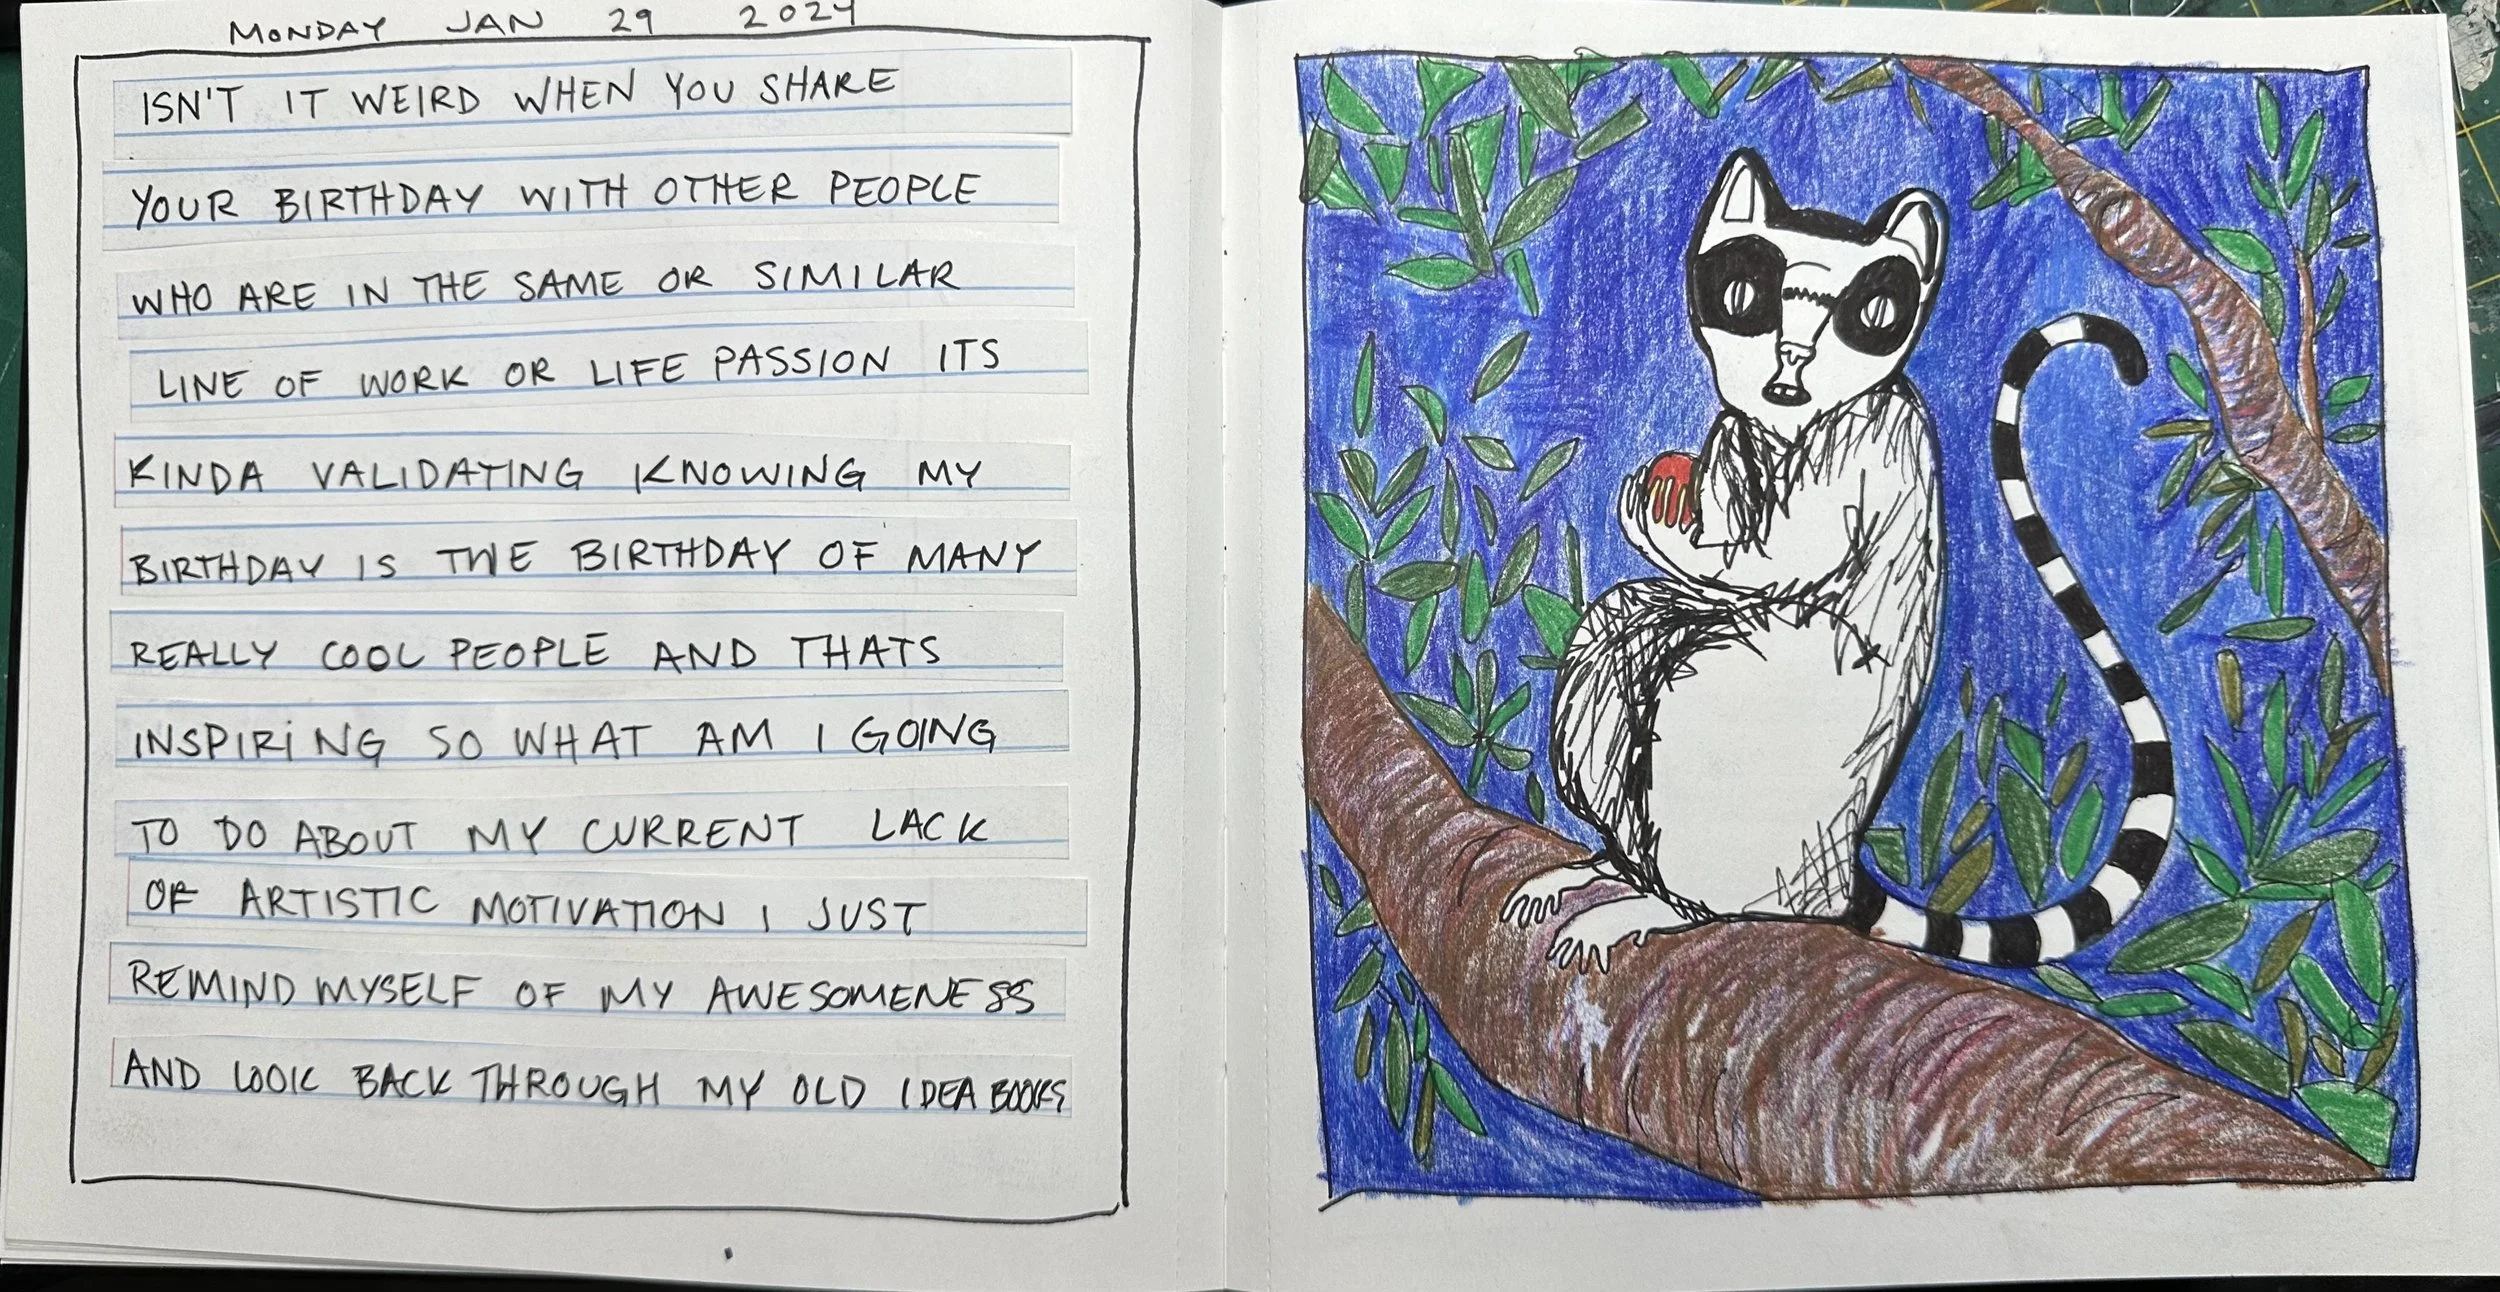 MONDAY JAN 29 2024
ISN'T IT WEIRD WHEN YOU SHARE
YOUR BIRTHDAY WITH OTHER PEOPLE
WHO ARE IN THE SAME OR SIMILAR
LINE OF WORK OR LIFE PASSION ITS
KINDA VALIDATING KNOWING MY
BIRTHDAY IS THE BIRTHDAY OF MANY
REALLY COOL PEOPLE AND THATS
INSPIRING SO WHAT AM I GOING
TO DO ABOUT MY CURRENT LACK
OF ARTISTIC MOTIVATION I JUST
REMIND MYSELF OF MY AWESOMENESS
AND LOOK BACK THROUGH MY OLD IDEA BOOKS